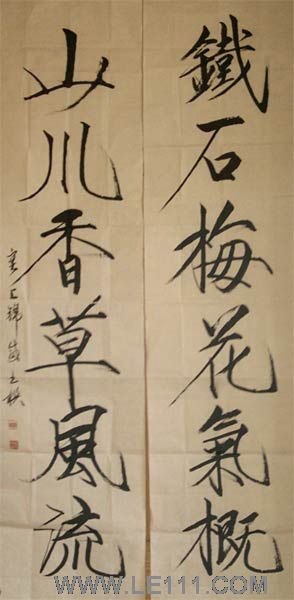 鐵石梅花氣概
山川香草風流
WWW.LE111.COM